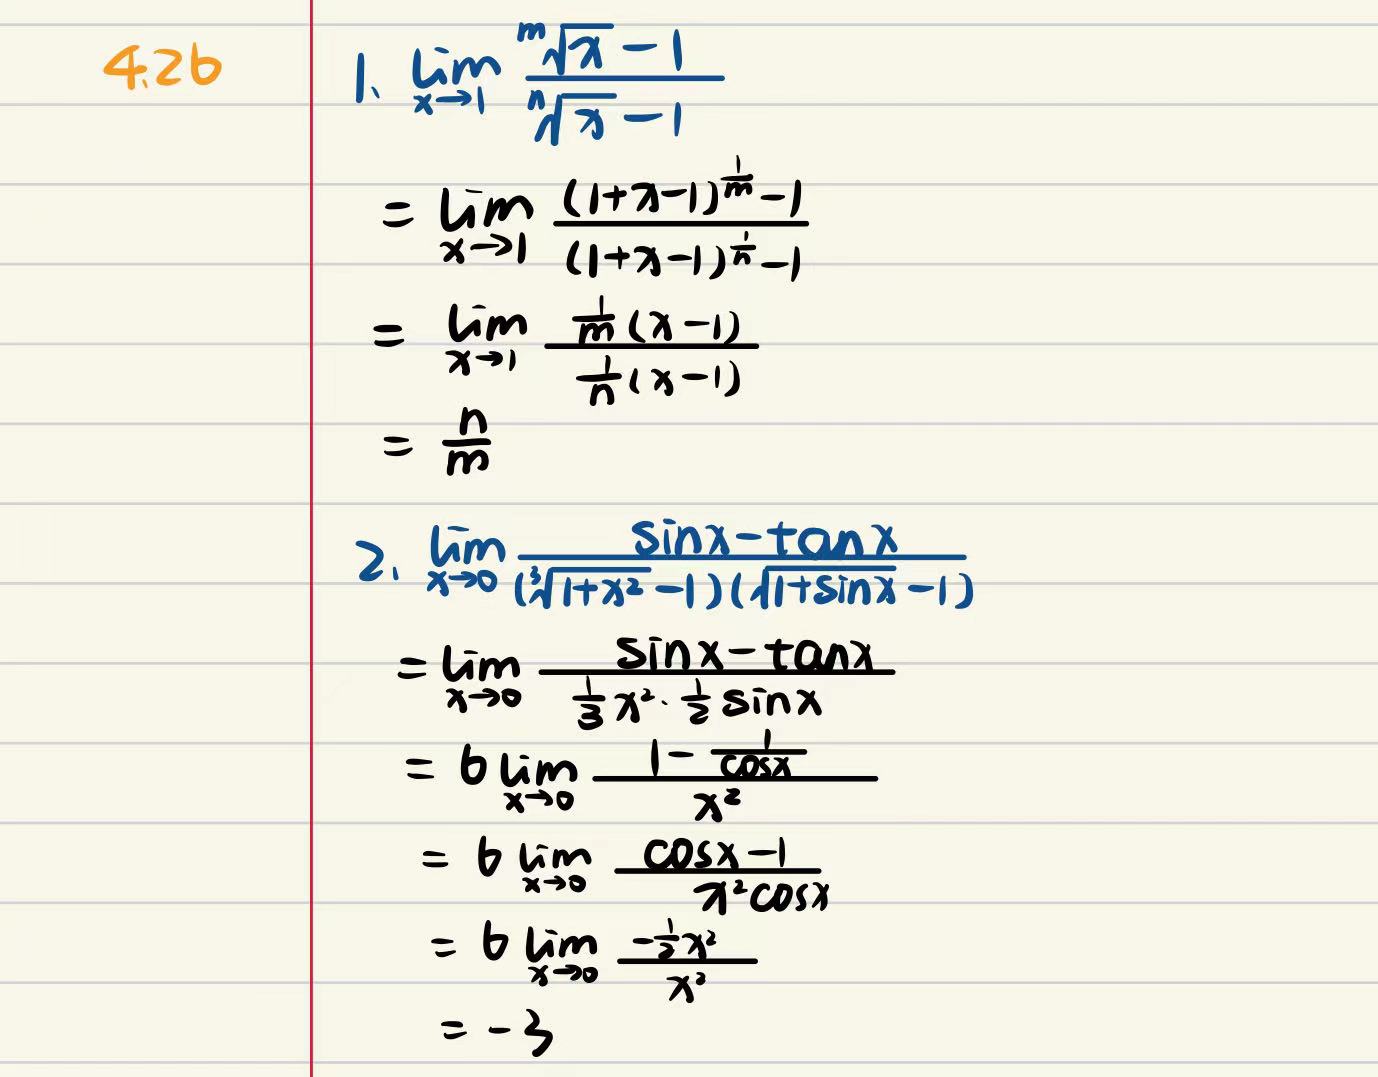 4.26
1. lim x→1 (ᵐ√x − 1)/(ⁿ√x − 1)
= lim x→1 ((1+x−1)^(1/m) − 1)/((1+x−1)^(1/n) − 1)
= lim x→1 (1/m (x−1))/(1/n (x−1))
= n/m
2. lim x→0 (sinx − tanx)/((³√(1+x²) − 1)(√(1+sinx) − 1))
= lim x→0 (sinx − tanx)/(1/3 x² · 1/2 sinx)
= 6 lim x→0 (1 − 1/cosx)/x²
= 6 lim x→0 (cosx − 1)/(x²cosx)
= 6 lim x→0 (−1/2 x²)/x²
= −3